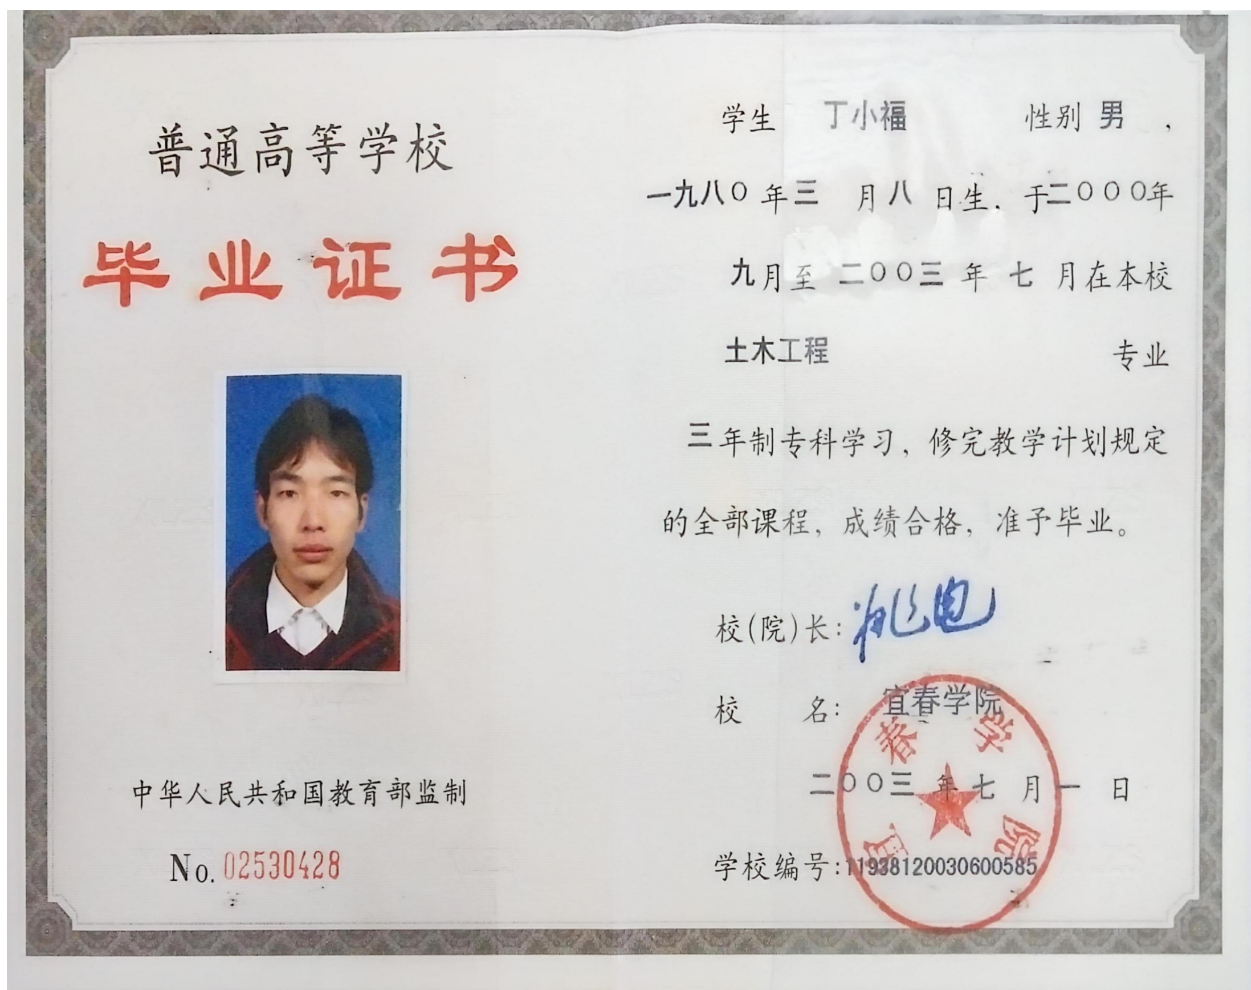 普通高等学校
毕业证书
中华人民共和国教育部监制
No. 02530428
学生 丁小福 性别 男 ,
一九八〇年三 月八 日生. 于二〇〇〇年
九月至 二〇〇三 年 七 月在本校
土木工程 专业
三年制专科学习, 修完教学计划规定
的全部课程, 成绩合格, 准予毕业。
校(院)长:
校 名: 宜春学院
二〇〇三 年 七 月 一 日
学校编号:11938120030600585
宜春学院